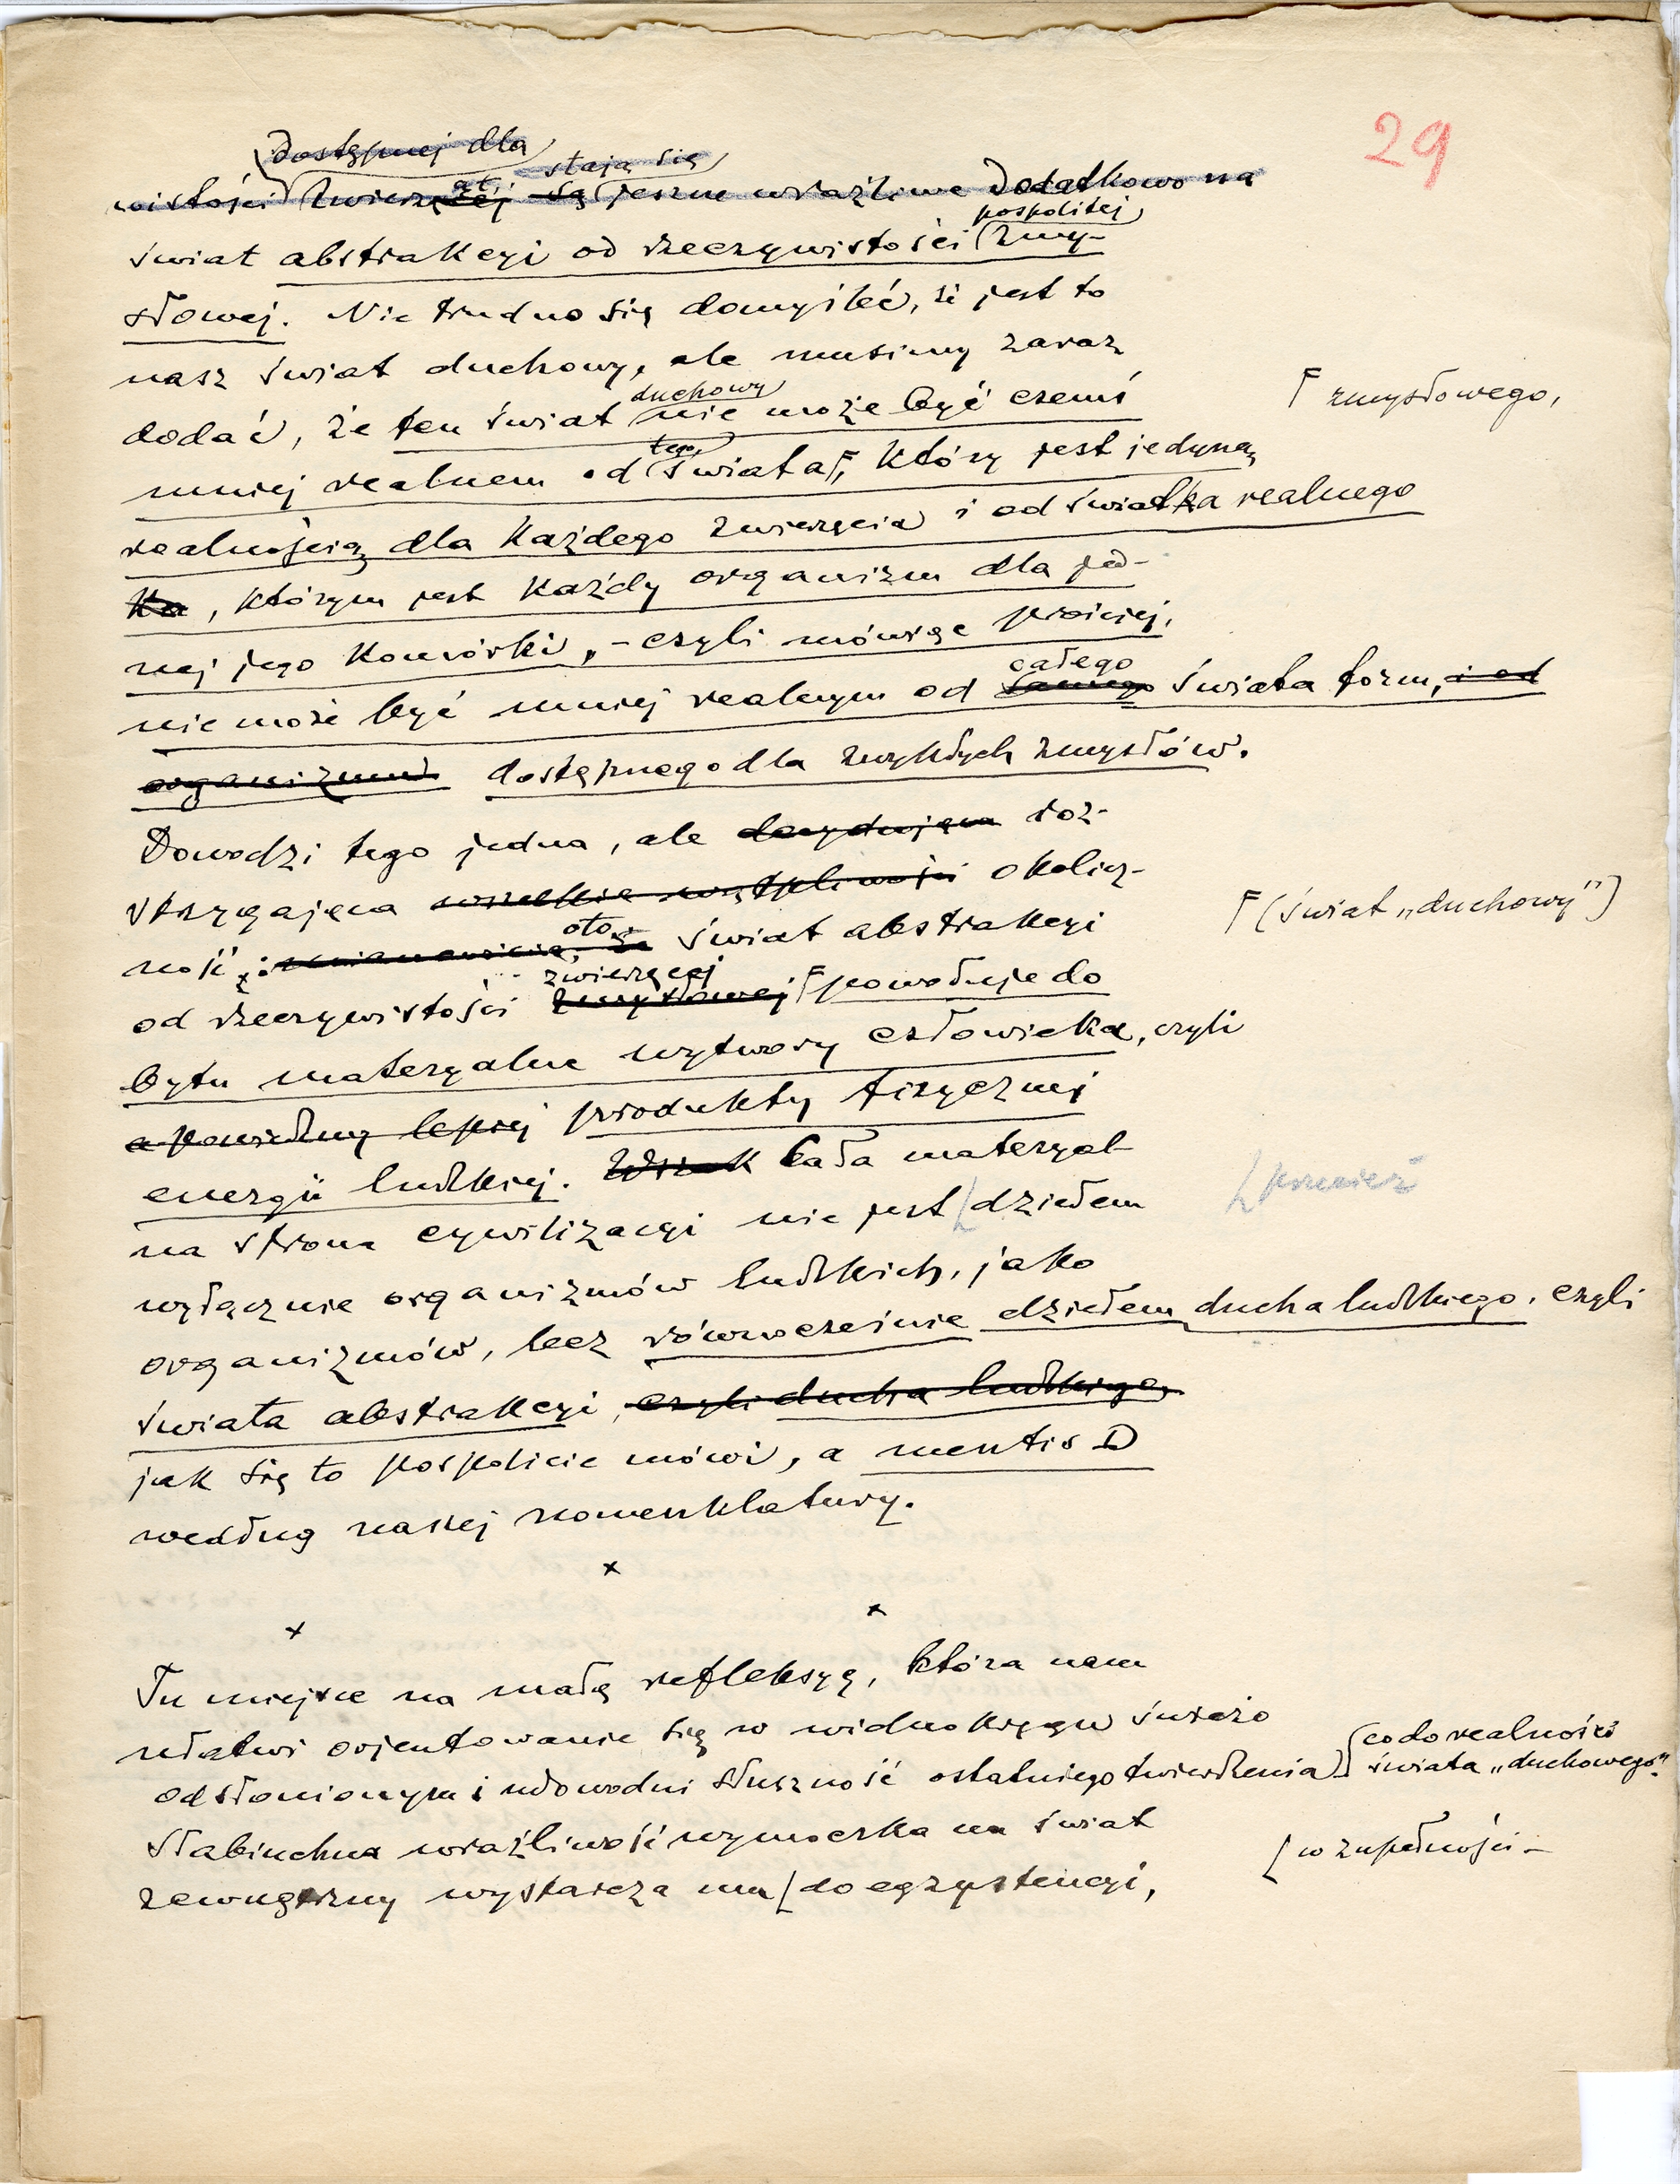 29
dostępnej dla stają się
wistości zwierząt są jeszcze wrażliwe dodatkowo na
pospolitej
świat abstrakcyi od rzeczywistości zmy-
słowej. Nie trudno się domyśleć, że jest to
nasz świat duchowy, ale musimy zaraz
duchowy
dodać, że ten świat nie może być czemś
⌈ zmysłowego,
tego
mniej realnem od świata⌈, który jest jedyną
realnością dla każdego zwierzęcia i od światka realnego
ka, którym jest każdy organizm dla jed-
nej jego komórki, – czyli mówiąc prościej,
całego
nie może być mniej realnym od samego świata form, i od
organizmu dostępnego dla zwykłych zmysłów.
Dowodzi tego jedna, ale decydująca roz-
strzygająca wszelkie wątpliwości okolicz-
oto
ność: mianowicie, że świat abstrakcyi
⌈(świat „duchowy")
zwierzęcej
od rzeczywistości zmysłowej ⌈powołuje do
bytu materyalne wytwory człowieka, czyli
a powiedzmy lepiej produkty fizycznej
energii ludzkiej. Wszak Cała materyal-
na strona cywilizacyi nie jest ⌊dziełem
⌊ przecież
wyłącznie organizmów ludzkich, jako
organizmów, lecz równocześnie dziełem ducha ludzkiego, czyli
świata abstrakcyi, czyli ducha ludzkiego,
jak się to pospolicie mówi, a mentis D
według naszej nomenklatury.
x
x x
Tu miejsce na małą refleksyę, która nam
ułatwi orjentowanie się w widnokręgu świeżo
odsłonionym i udowodni słuszność ostatniego twierdzenia ⌊co do realności
świata „duchowego".
Słabiuchna wrażliwość wymoczka na świat
zewnętrzny wystarcza mu ⌊do egzystencyi,
⌊ w zupełności –